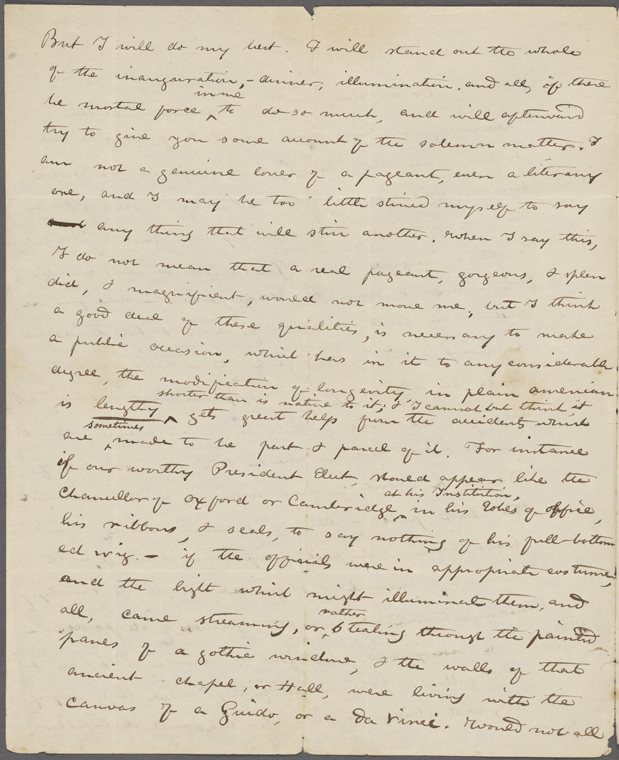 But I will do my best. I will stand out the whole
of the inauguration, - dinner, illumination, and all, if there
in me
be mortal force ^ to do so much, and will afterward
try to give you some account of the solemn matter. I
am not a genuine lover of a pageant, even a literary
one, and I may be too little stirred myself to say
any thing that will stir another. When I say this,
I do not mean that a real pageant, gorgeous, & splen
did, & magnificent, would not move me, but I think
a good deal of these qualities, is necessary to make
a public occasion, which has in it to any considerable
degree, the modification of longevity in plain american
shorter than is native to it; & I cannot but think it
is lengthy ^ gets great helps from the accidents which
sometimes
are ^ made to be part & parcel of it. For instance
if our worthy President Elect, should appear like the
at his Institution,
Chancellor of Oxford or Cambridge ^ in his robes of office,
his ribbons, & seals, to say nothing of his full-bottom
ed wig. - if the officials were in appropriate costume,
and the light which might illuminate them, and
rather
all, came streaming, or ^ stealing through the painted
panes of a gothic window, & the walls of that
ancient chapel, or Hall, were living with the
canvas of a Guido, or a Da Vinci. Would not all